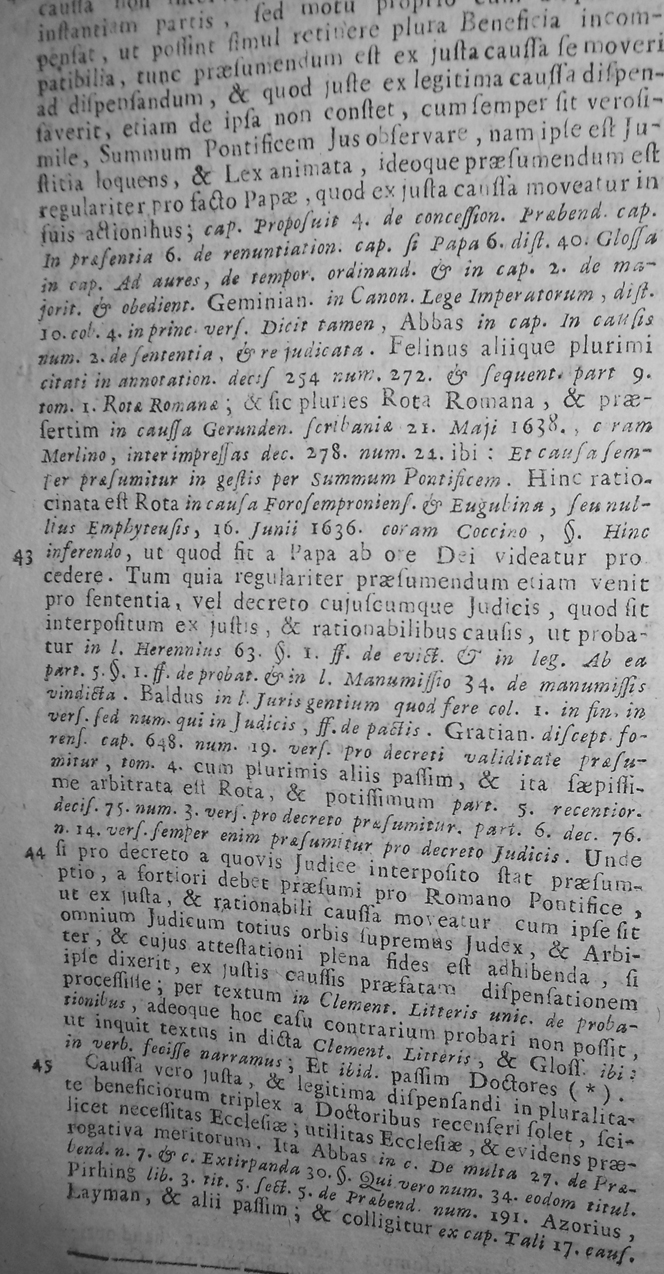 caussa non
instantiam partis, sed motu proprio
pensat, ut possint simul retinere plura Beneficia incom-
patibilia, tunc præsumendum est ex justa caussa se moveri
ad dispensandum, & quod juste ex legitima caussa dispen-
saverit, etiam de ipsa non constet, cum semper sit verosi-
mile, Summum Pontificem Jus observare, nam ipse est Ju-
stitia loquens, & Lex animata, ideoque præsumendum est
regulariter pro facto Papæ, quod ex justa caussa moveatur in
suis actionibus; cap. Proposuit 4. de concession. Præbend. cap.
In præsentia 6. de renuntiation. cap. si Papa 6. dist. 40. Glossa
in cap. Ad aures, de tempor. ordinand. & in cap. 2. de ma-
jorit. & obedient. Geminian. in Canon. Lege Imperatorum, dist.
10. col. 4. in princ. vers. Dicit tamen, Abbas in cap. In causis
num. 2. de sententia, & re judicata. Felinus aliique plurimi
citati in annotation. decis 254 num. 272. & sequent. part 9.
tom. 1. Rotæ Romanæ; & sic pluries Rota Romana, & præ-
sertim in caussa Gerunden. scribaniæ 21. Maji 1638., c ram
Merlino, inter impressas dec. 278. num. 21. ibi: Et causa sem-
per præsumitur in gestis per Summum Pontificem. Hinc ratio-
cinata est Rota in causa Forosemproniens. & Eugubina, seu nul-
lius Emphyteusis, 16. Junii 1636. coram Coccino, §. Hinc
43 inferendo, ut quod fit a Papa ab ore Dei videatur pro
cedere. Tum quia regulariter præsumendum etiam venit
pro sententia, vel decreto cujuscumque Judicis, quod sit
interpositum ex justis, & rationabilibus causis, ut proba-
tur in l. Herennius 63. §. 1. ff. de evict. & in leg. Ab ea
part. 5. §. 1. ff. de probat. & in l. Manumissio 34. de manumissis
vindicta. Baldus in l. Juris gentium quod fere col. 1. in fin. in
vers. sed num. qui in Judicis, ff. de pactis. Gratian. discept. fo-
rens. cap. 648. num. 19. vers. pro decreti validitate præsu-
mitur, tom. 4. cum plurimis aliis passim, & ita sæpissi-
me arbitrata est Rota, & potissimum part. 5. recentior.
decis. 75. num. 3. vers. pro decreto præsumitur. part. 6. dec. 76.
n. 14. vers. semper enim præsumitur pro decreto Judicis. Unde
44 si pro decreto a quovis Judice interposito stat præsum-
ptio, a fortiori debet præsumi pro Romano Pontifice,
ut ex justa, & rationabili caussa moveatur cum ipse sit
omnium Judicum totius orbis supremus Judex, & Arbi-
ter, & cujus attestationi plena fides est adhibenda, si
ipse dixerit, ex justis caussis præfatam dispensationem
processisse; per textum in Clement. Litteris unic. de proba-
tionibus, adeoque hoc casu contrarium probari non possit,
ut inquit textus in dicta Clement. Litteris, & Gloss. ibi:
in verb. fecisse narramus; Et ibid. passim Doctores (*).
45 Caussa vero justa, & legitima dispensandi in pluralita-
te beneficiorum triplex a Doctoribus recenseri solet, sci-
licet necessitas Ecclesiæ; utilitas Ecclesiæ, & evidens præ-
rogativa meritorum. Ita Abbas in c. De multa 27. de Præ-
bend. n. 7. & c. Extirpanda 30. §. Qui vero num. 34. eodom titul.
Pirhing lib. 3. tit. 5. sect. 5. de Præbend. num. 191. Azorius,
Layman, & alii passim; & colligitur ex cap. Tali 17. caus.